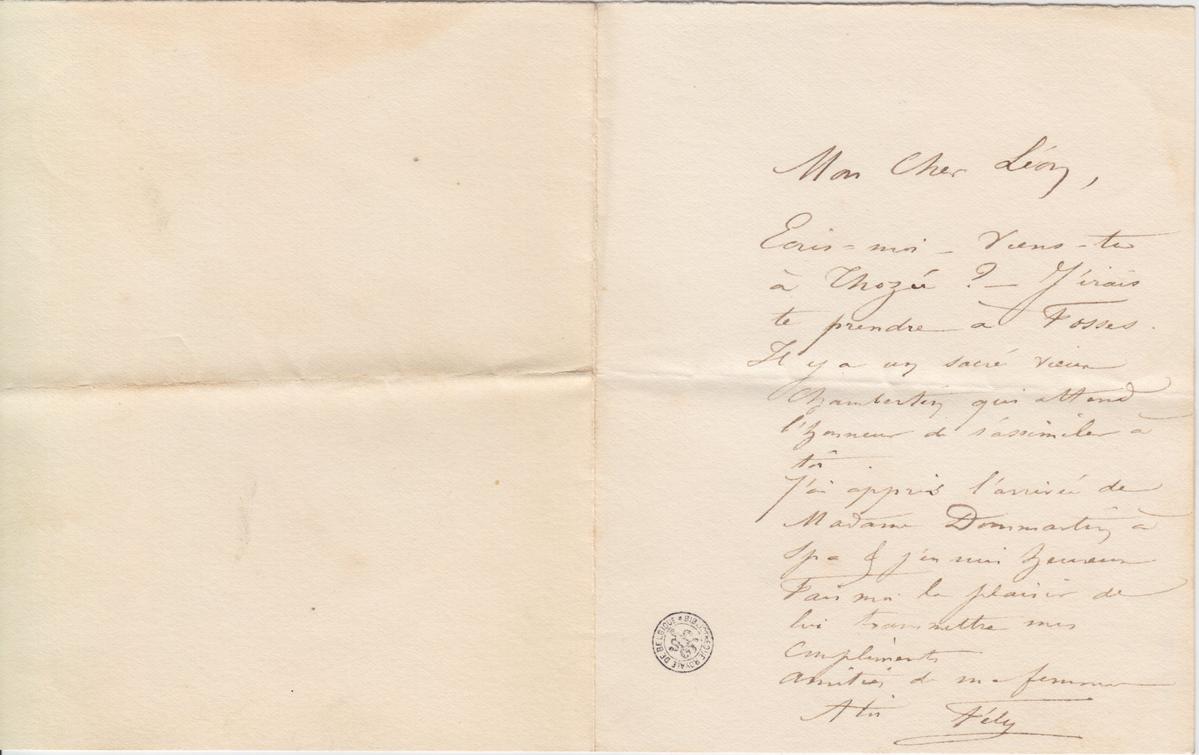 Mon Cher Léon,
Ecris-moi - Viens-tu
à Thozée ? - J'irais
te prendre à Fosses.
Il y a un sacré vieux
Chambertin qui attend
l'honneur de s'assimiler à
toi
J'ai appris l'arrivée de
Madame Dommartin à
Spa & j'en suis heureux
Fais moi le plaisir de
lui transmettre mes
compliments
amitiés de ma femme
A toi Fély
BIBLIOTHEQUE ROYALE DE BELGIQUE